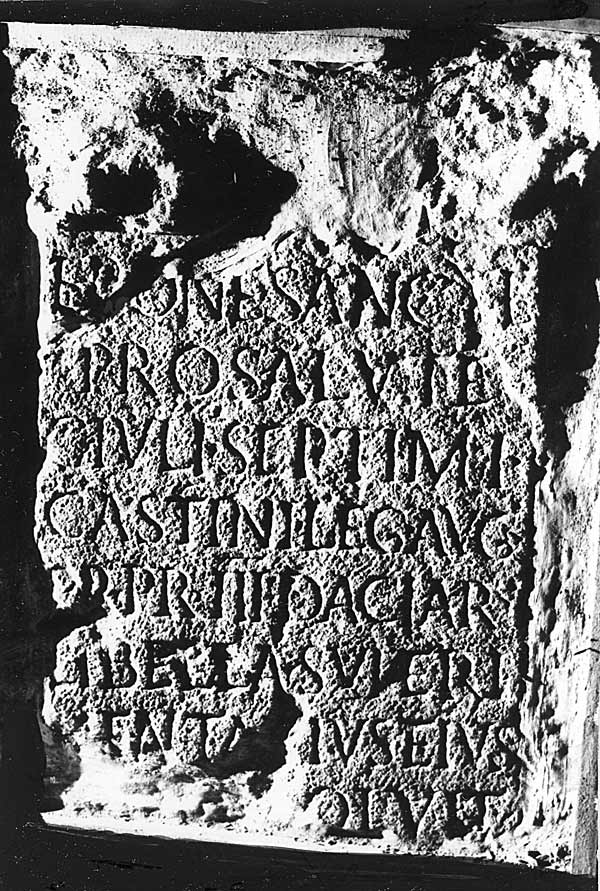 ONESANCTI
PROSALVTE
C·IVLI·SEPTIMI·
CASTINILEGAVG
PR·PR·III DACIAR
IBELLA
IVSEIVS
OLVIT